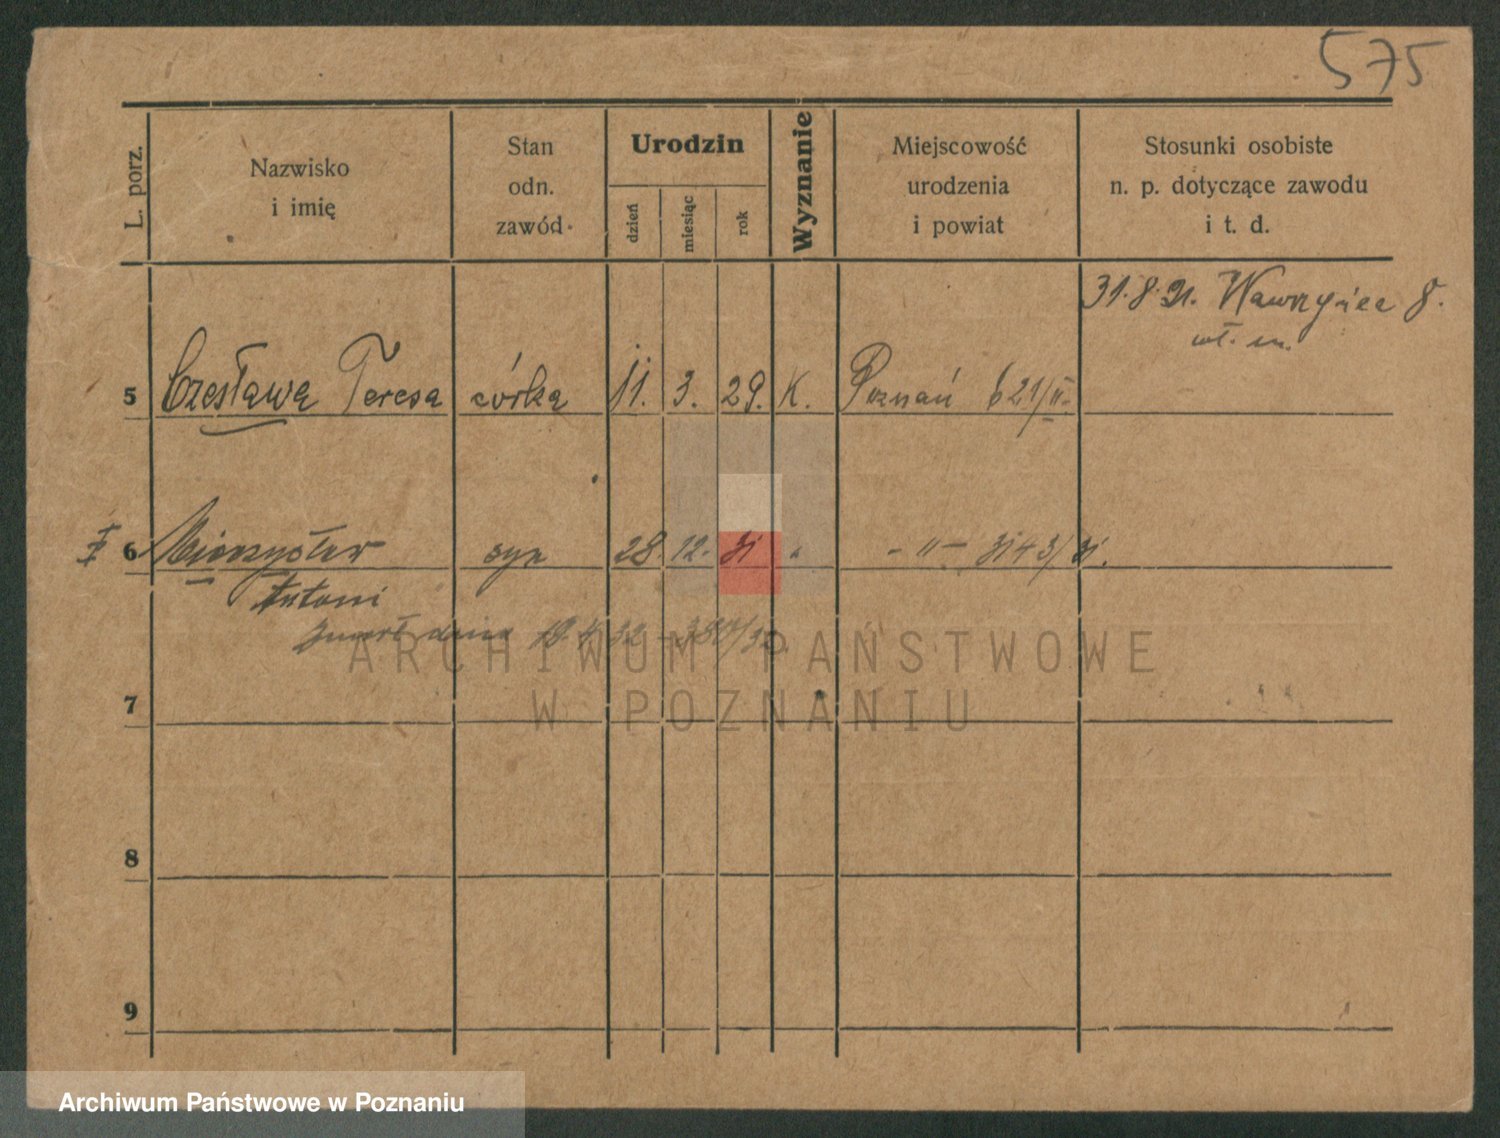 575
L. porz.
Nazwisko
i imię
Stan
odn.
zawód
Urodzin
dzień
miesiąc
rok
Wyznanie
Miejscowość
urodzenia
i powiat
Stosunki osobiste
n. p. dotyczące zawodu
i t. d.
31.8.31. Wawrzyńca 8.
wł. m.
5 Czesława Teresa córka 11. 3. 29. K. Poznań 621/II.
6 Mieczysław syn 28. 12. 31 " - " - 3143/31.
Antoni
zmarł dnia 19.4.32
ARCHIWUM PAŃSTWOWE
W POZNANIU
7
8
9
Archiwum Państwowe w Poznaniu